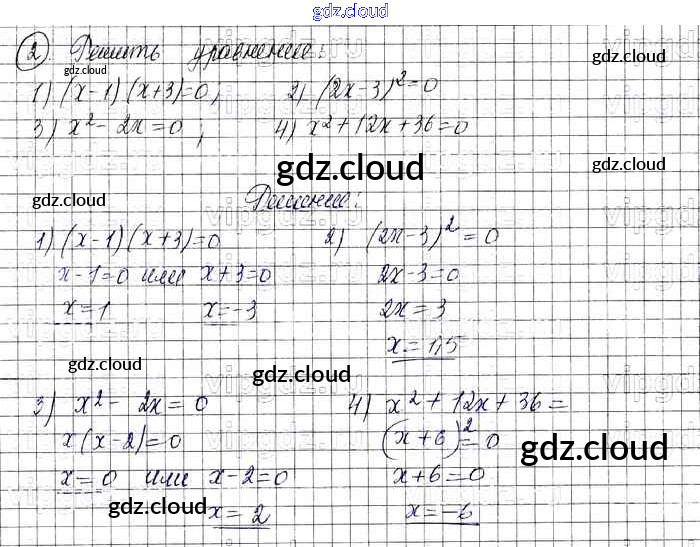 gdz.cloud
2. Решить уравнение:
1) (x-1)(x+3)=0, 2) (2x-3)²=0
3) x²-2x=0; 4) x²+12x+36=0
Решение:
1) (x-1)(x+3)=0 2) (2x-3)²=0
x-1=0 или x+3=0 2x-3=0
x=1 x=-3 2x=3
x=1,5
3) x²-2x=0 4) x²+12x+36=
x(x-2)=0 (x+6)²=0
x=0 или x-2=0 x+6=0
x=2 x=-6
gdz.cloud
gdz.cloud
gdz.cloud
gdz.cloud
gdz.cloud
gdz.cloud
gdz.cloud
gdz.cloud